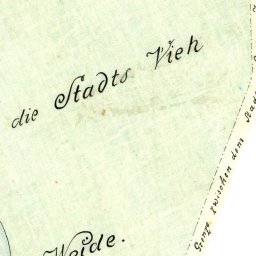 die Stadts Vieh
Weide.
Grenze zwischen dem Stadt